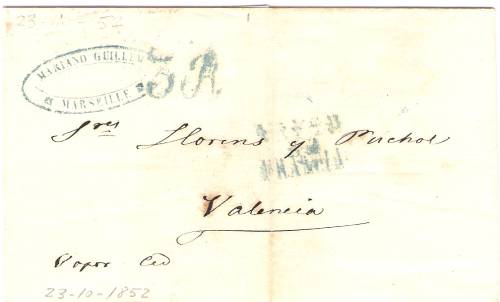 23-
MARIANO GUILLEM
MARSEILLE
5 R.
Sres Llorens y Puchol
Valencia
Vapor Cid
23-10-1852